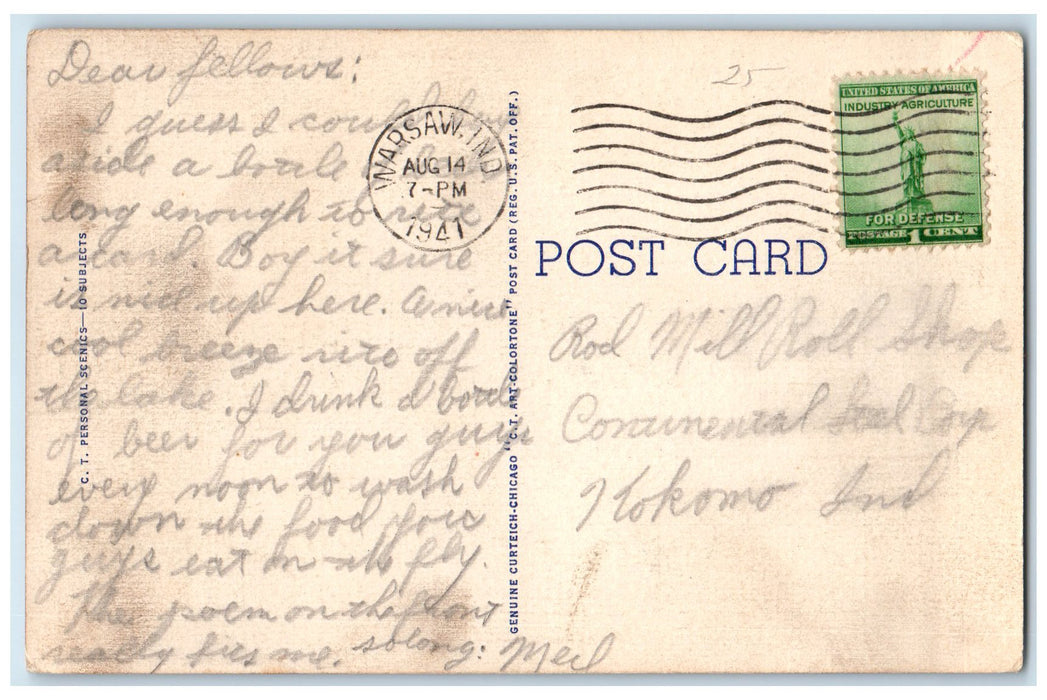 Dear fellows:
I guess I could
aside a bottle
long enough to rite
a card. Boy it sure
is nice up here. A nice
cool breeze rite off
the lake. I drink a bottle
of beer for you guys
every noon to wash
down the food you
guys eat on the fly.
The poem on the front
really fits me. so long: Meil
C. T. PERSONAL SCENICS—10 SUBJECTS
GENUINE CURTEICH-CHICAGO "C.T. ART-COLORTONE" POST CARD (REG. U.S. PAT. OFF.)
WARSAW, IND.
AUG 14
7-PM
1941
25
UNITED STATES OF AMERICA
INDUSTRY AGRICULTURE
FOR DEFENSE
POSTAGE 1 CENT
POST CARD
Rod Mill Roll Shop
Continental Steel Corp
Kokomo Ind